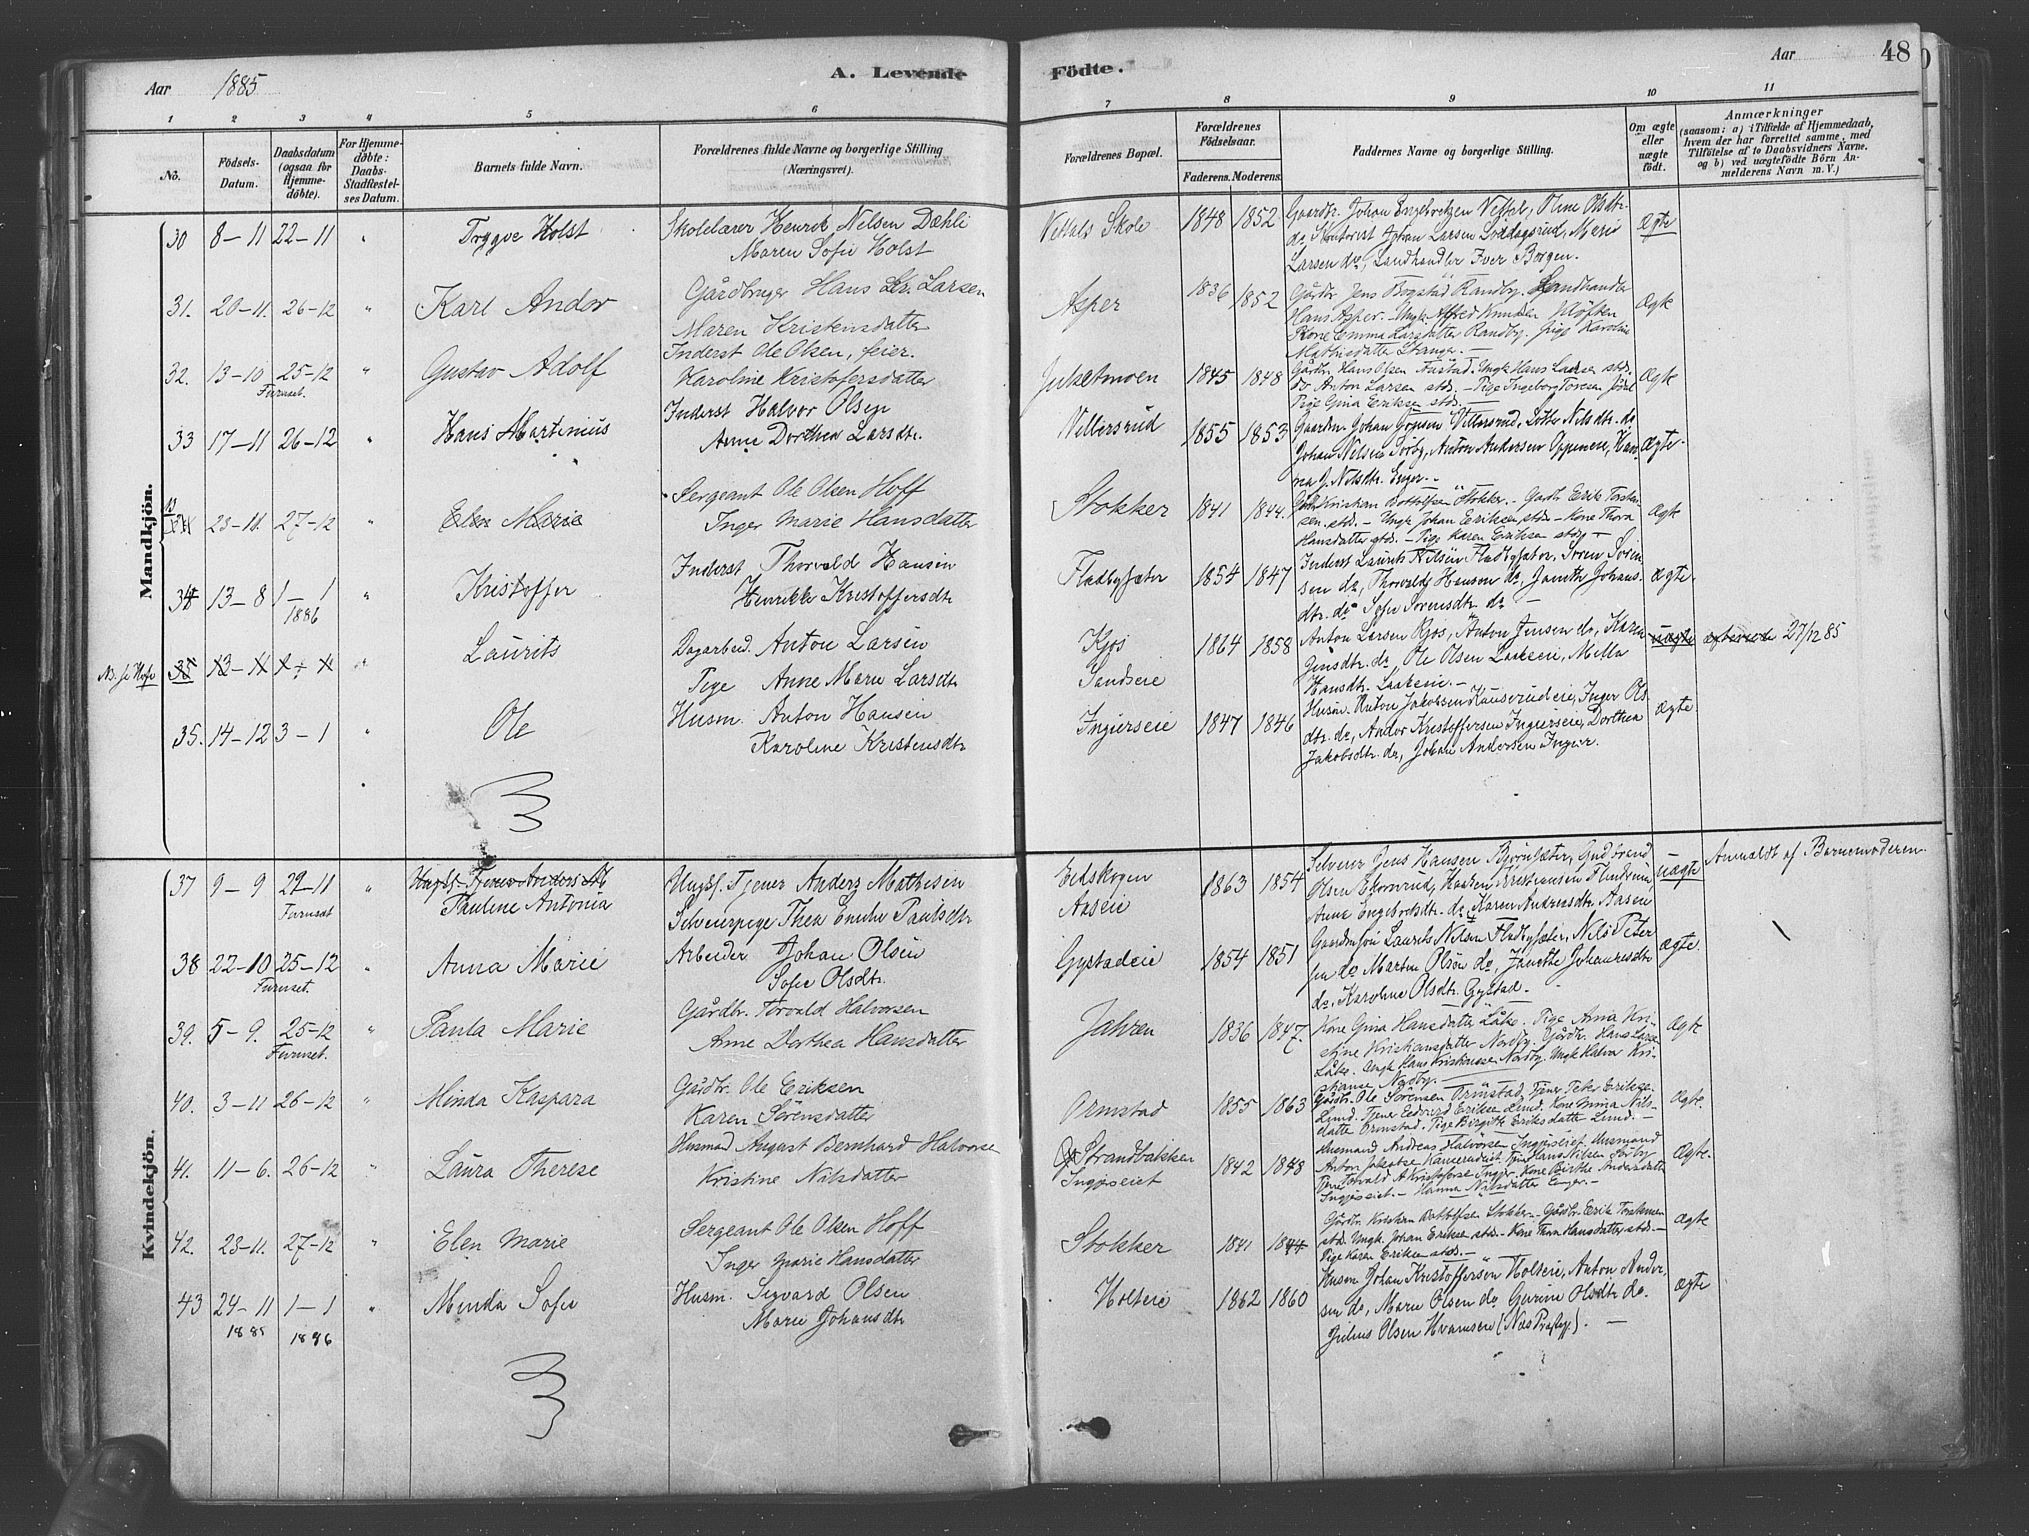 Aar 1885
A. Levende Födte.
Aar
48
1 2 3 4 5 6 7 8 9 10 11
No.
Födsels-Datum.
Daabsdatum (ogsaa for Hjemme-döbte).
For Hjemme-döbte: Daabs-Stadfestel-ses Datum.
Barnets fulde Navn.
Forældrenes fulde Navne og borgerlige Stilling (Næringsvei).
Forældrenes Bopæl.
Forældrenes Födselsaar.
Faderens. Moderens.
Faddernes Navne og borgerlige Stilling.
Om ægte eller uægte födt.
Anmærkninger
(saasom: a) i Tilfælde af Hjemmedaab,
hvem der har forrettet samme, med
Tilföielse af to Daabsvidners Navne,
og b) ved uægtefödte Börn An-
melderens Navn m. V.)
Mandkjön.
30 8-11 22-11 " Trygve Holst
Skolelærer Henrik Nilsen Dæhli
Maren Sofie Holst
Skole 1848 1852
Gaardbr. Johan Engebretsen Oline Olsdtr.
do, Johan Larsen Marie
Larsen do, Landhandler Iver Borgen.
Ægte
31. 20-11. 26-12 " Karl Andor
Gårdbruger Hans Larsen
Maren Kristensdatter
Asper 1836 1852
Gårdbr Jens Bogstad Randby. Landhandler
Hans Asper. Ungk. Alfred Knudsen Kløften
Kone Emma Larsdatter Randby. Pige Karoline
Mathisdatter Stange. -
Ægte
32. 13-10 25-12 Furuset. " Gustav Adolf
Inderst Ole Olsen, feier.
Karoline Kristofersdatter
Julsetmoen 1845 1848
Gårdbr. Hans Olsen Ungk Hans Larsen stds.
do Anton Larsen stds. - Pige Ingeborg Toresen
Pige Gina Eriksen stds. -
Ægte
33 17-11 26-12 " Hans Martinius
Inderst Halvor Olsen
Anne Dorthea Larsdtr.
Villersrud 1855 1853
Gaardbr. Johan Villersrud, Nilsdtr. do
Johan Nelsen Anton Andersen Han-
Nilsdtr. Enger. -
Ægte.
23-11. 27-12 " Elen Marie
Sergeant Ole Olsen Hoff
Inger Marie Hansdatter
Stokker 1841 1844.
Gårdbr Kristian Stokker. - Gårdbr Erik Torsten-
sen. stds. - Ungk Johan Eriksen stds. - Kone Thora
Hansdatter stds. - Pige Karen Eriksen stds. -
Ægte
34 13-8 1-1 1886 " Kristoffer
Inderst Thorvald Hansen
Henrikke Kristoffersdtr
Fladbysæter 1854 1847
Inderst Laurits Nilsen Fladbysæter, Søren Søren-
sen do, Thorvald Hansen do, Janette Johans-
dtr. do Sofie Sørensdtr. do
ægte.
35 13-11 " Laurits
Dagarbeid. Anton Larsen
Pige Anne Marie Larsdtr
Kjos
Sandseie
1864 1858
Anton Larsen Kjos, Anton Jensen do, Karen
Jensdtr. do, Ole Olsen Laakeeie, Mella
Hansdtr. Laakeeie. -
uægte
27/12 85
35. 14-12 3-1 " Ole
Husm. Anton Hansen
Karoline Kristensdtr
Ingierseie 1847 1846
Husm. Anton Jakobsen Kauserudeie, Inger Ols-
dtr. do, Andor Kristoffersen Ingierseie, Dorthea
Jakobsdtr. do, Johan Andersen Ingier.
ægte
Kvindekjön.
37 9-9 22-11 Furuset " Ungkf. Tjener Anders
Pauline Antonia
Ungkf. Tjener Anders Mathisen
Selveierpige Thea Emilie Paulsdtr
Eidskogen
Aaseie
1863 1854
Selveier Jens Hansen Bjørnsæter, Gudbrand
Olsen Ekornrud, Haaken Kristiansen
Anne Engebretsdtr. do, Karen Andreasdtr Aasen
uægte
Anmeldt af Barnemoderen.
38 22-10 25-12 Furuset. " Anna Marie
Arbeider Johan Olsen
Sofie Olsdtr.
Gystadeie 1854 1851
Gaardmsøn Laurits Nilsen Fladbysæter, Nils Peter-
sen do Martin Olsen do, Janette Johannesdtr
do, Karoline Olsdtr. Gystad. -
ægte.
39. 5-9. 25-12 Furuset. " Paula Marie
Gårdbr. Torvald Halvorsen
Anne Dorthea Hansdatter
Jahren 1836 1847.
Kone Gina Hansdatter Låke. Pige Anna Kri-
stine Kristiansdatter Nordby. Gårdbr. Hans Larsen
Låke. Ungk Hans Kristiansen Nordby. Ungk Halvor Kri-
stiansen Nordby.
Ægte.
40. 3-11 26-12 " Minda Kaspara
Gårdbr. Ole Eriksen
Karen Sørensdatter
Ormstad 1855 1863
Gårdbr. Ole Sørensen Ormstad, Tjener Peter Eriksen
Lund. Tjener Edvard Eriksen Lund. Kone Mina Nils-
datter Ormstad. Pige Birgitte Eriksdatter Lund. -
Ægte.
41. 11-6. 26-12 " Laura Therese
Husmand August Bernhard Halvorsen
Kristine Nilsdatter
Strandbakken
Ingierseiet
1842 1848
Husmand Andreas Halvorsen Ingierseiet. Husmand
Anton Jakobsen Hans Nilsen
Torvald Kristofersen Ingier. Kone Birthe Andersdatter
Ingierseiet. - Hanna Nilsdatter Enger. -
Ægte.
42. 23-11. 27-12 " Elen Marie
Sergeant Ole Olsen Hoff
Inger Marie Hansdatter
Stokker 1841 1844
Gårdbr. Kristian Stokker. - Gårdbr. Erik Torstensen
stds. Ungk Johan Eriksen stds. - Kone Thora Hansdatter stds. -
Pige Karen Eriksen stds. -
Ægte
43 24-11 1885 1-1 1886 " Minda Sofie
Husm. Sigvard Olsen
Marie Johansdtr
Holteie 1862 1860
Husm Johan Kristoffersen Holteie, Anton Ander-
sen do, Marie Olsen do Gurine Olsdtr do.
Julius Olsen Hvamseie (Næs Præstgj). -
ægte